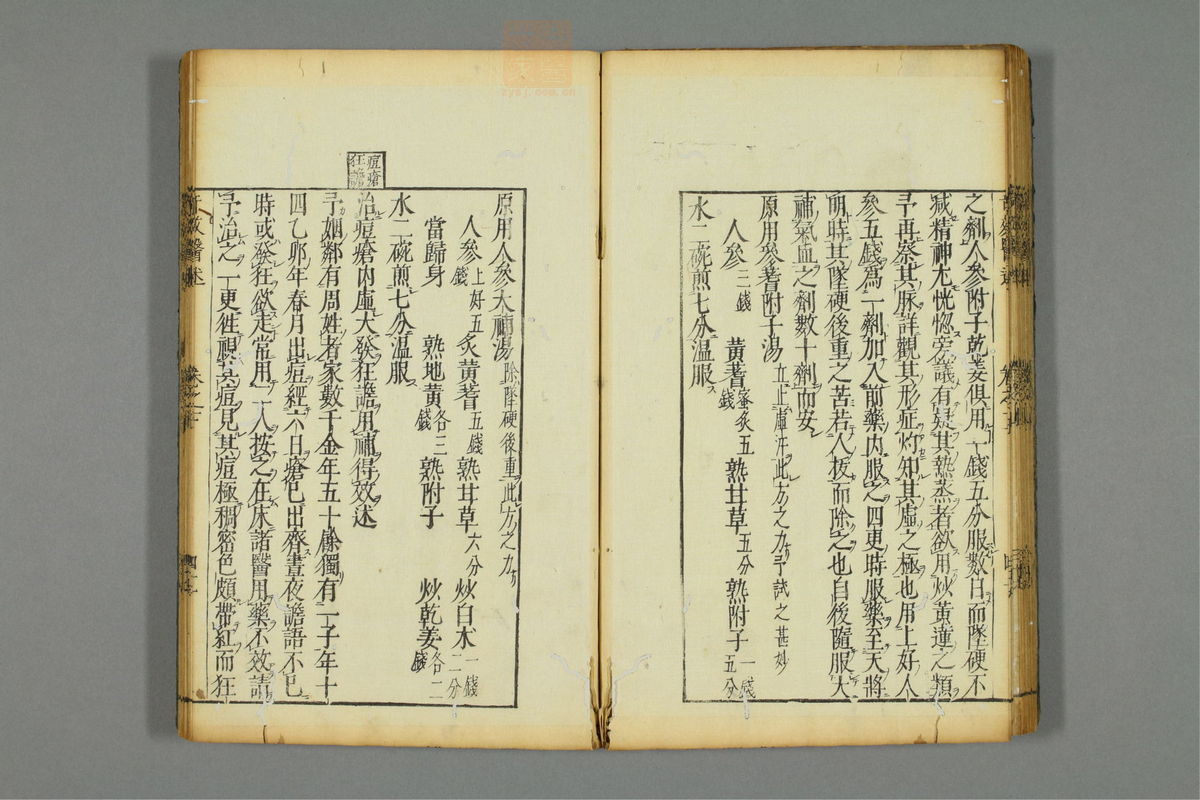 之劑人參附子乾姜俱用一錢五分服數日而墜硬不
減精神尤恍惚旁議有疑其熱蒸者欲用炒黃連之類
予再察其脈詳觀其形症灼知其虛之極也用上好人
參五錢為一劑加入前藥內服之四更時服藥至天將
明時其墜硬後重之苦若人拔而除之也自後隨服大
補氣血之劑數十劑而安
原用參蓍附子湯 立止虛汗此方之力予試之甚妙
人參三錢 黃蓍蜜炙五錢 熟甘草五分 熟附子一錢五分
水二碗煎七分溫服
原用人參大補湯 除墜硬後重此方之力
人參上好五錢 炙黃蓍五錢 熟甘草六分 炒白朮一錢二分
當歸身 熟地黃各三錢 熟附子 炒乾姜各二錢
水二碗煎七分溫服
痘瘡狂譫
治痘瘡內虛大發狂譫用補得效述
予姻鄰有周姓者家數千金年五十餘獨有一子年十
四乙卯年春月出痘經六日瘡已出齊晝夜譫語不已
時或發狂欲走常用二人按之在床諸醫用藥不效請
予治之一更徃視其痘見其痘極稠密色頗帶紅而狂